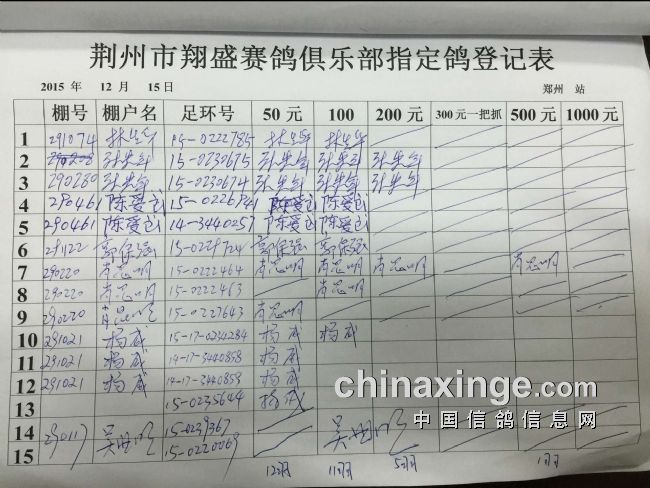 荆州市翔盛赛鸽俱乐部指定鸽登记表
2015 年 12 月 15 日 郑州 站
棚号 棚户名 足环号 50 元 100 200 元 300元一把抓 500 元 1000 元
1 291074 15-0222785
2 290208 15-0230675
3 290230 15-0230674
4 290461 陈爱 15-0226741 陈爱 陈爱
5 290461 陈爱 14-3440257 陈爱 陈爱
6 291122 郭保强 15-0229724 郭保强 郭保强
7 290220 肖志明 15-0222464 肖志明 肖志明 肖志明 肖志明
8 290220 肖志明 15-0222463 肖志明
9 290220 肖志明 15-0227643 肖志明
10 291021 杨威 15-17-0234284 杨威 杨威
11 291021 杨威 14-17-3440858 杨威
12 291021 杨威 14-17-3440859 杨威
13 15-0235644 杨威
14 290117 吴 15-0239367 吴
15 15-0220069
12羽 11羽 5羽 1羽
chinaxinge.com
中国信鸽信息网